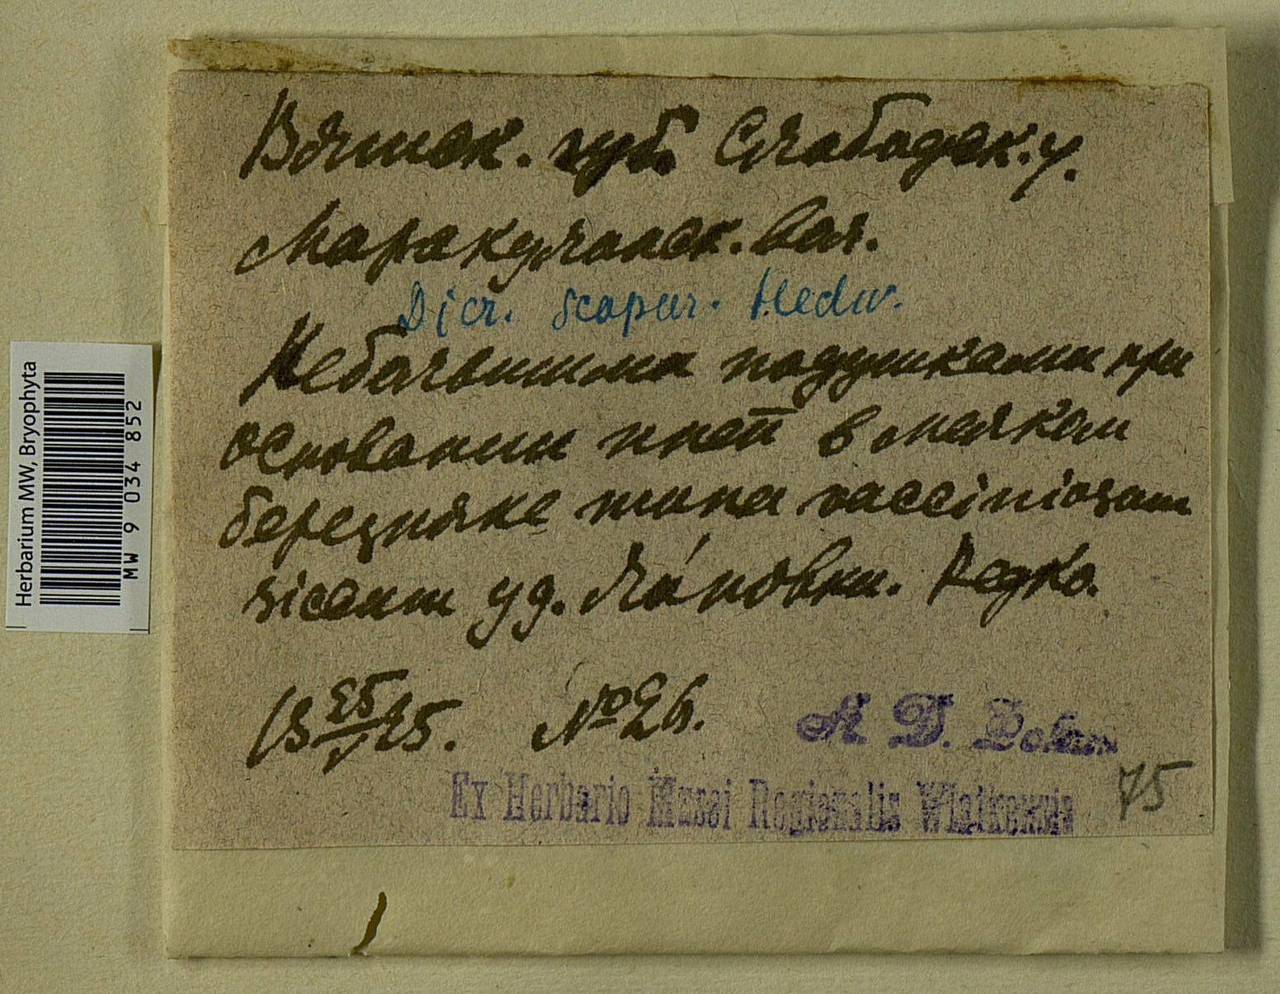 Вятск. губ. Слободск. у.
Маракулинск. вол.
Dicr. scopar. Hedw.
Небольшими подушками при
основании пней в мелком
березняке типа vacciniosum
siccum уд. Ляповки. Редко.
13 25/V 25. № 26.
A. D.
75
Ex Herbario Musei Regionalis Wiatkensis
Herbarium MW, Bryophyta
MW 9 034 852